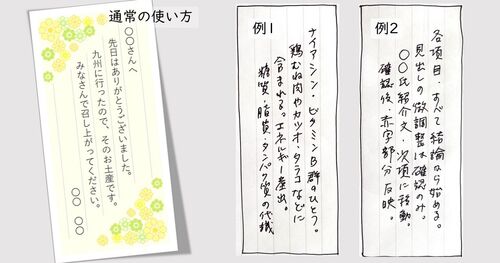 通常の使い方
〇〇さんへ
先日はありがとうございました。
九州に行ったので、そのお土産です。
みなさんで召し上がってください。
〇〇 〇〇
例1
ナイアシン・ビタミンB群のひとつ。
鶏むね肉やカツオ・タラコなどに
含まれる。エネルギー産出。
糖質・脂質・タンパク質の代謝
例2
各項目・すべて結論から始める。
見出しの微調整は確認のみ。
〇〇氏紹介文・次項に移動。
確認後・赤字部分反映。